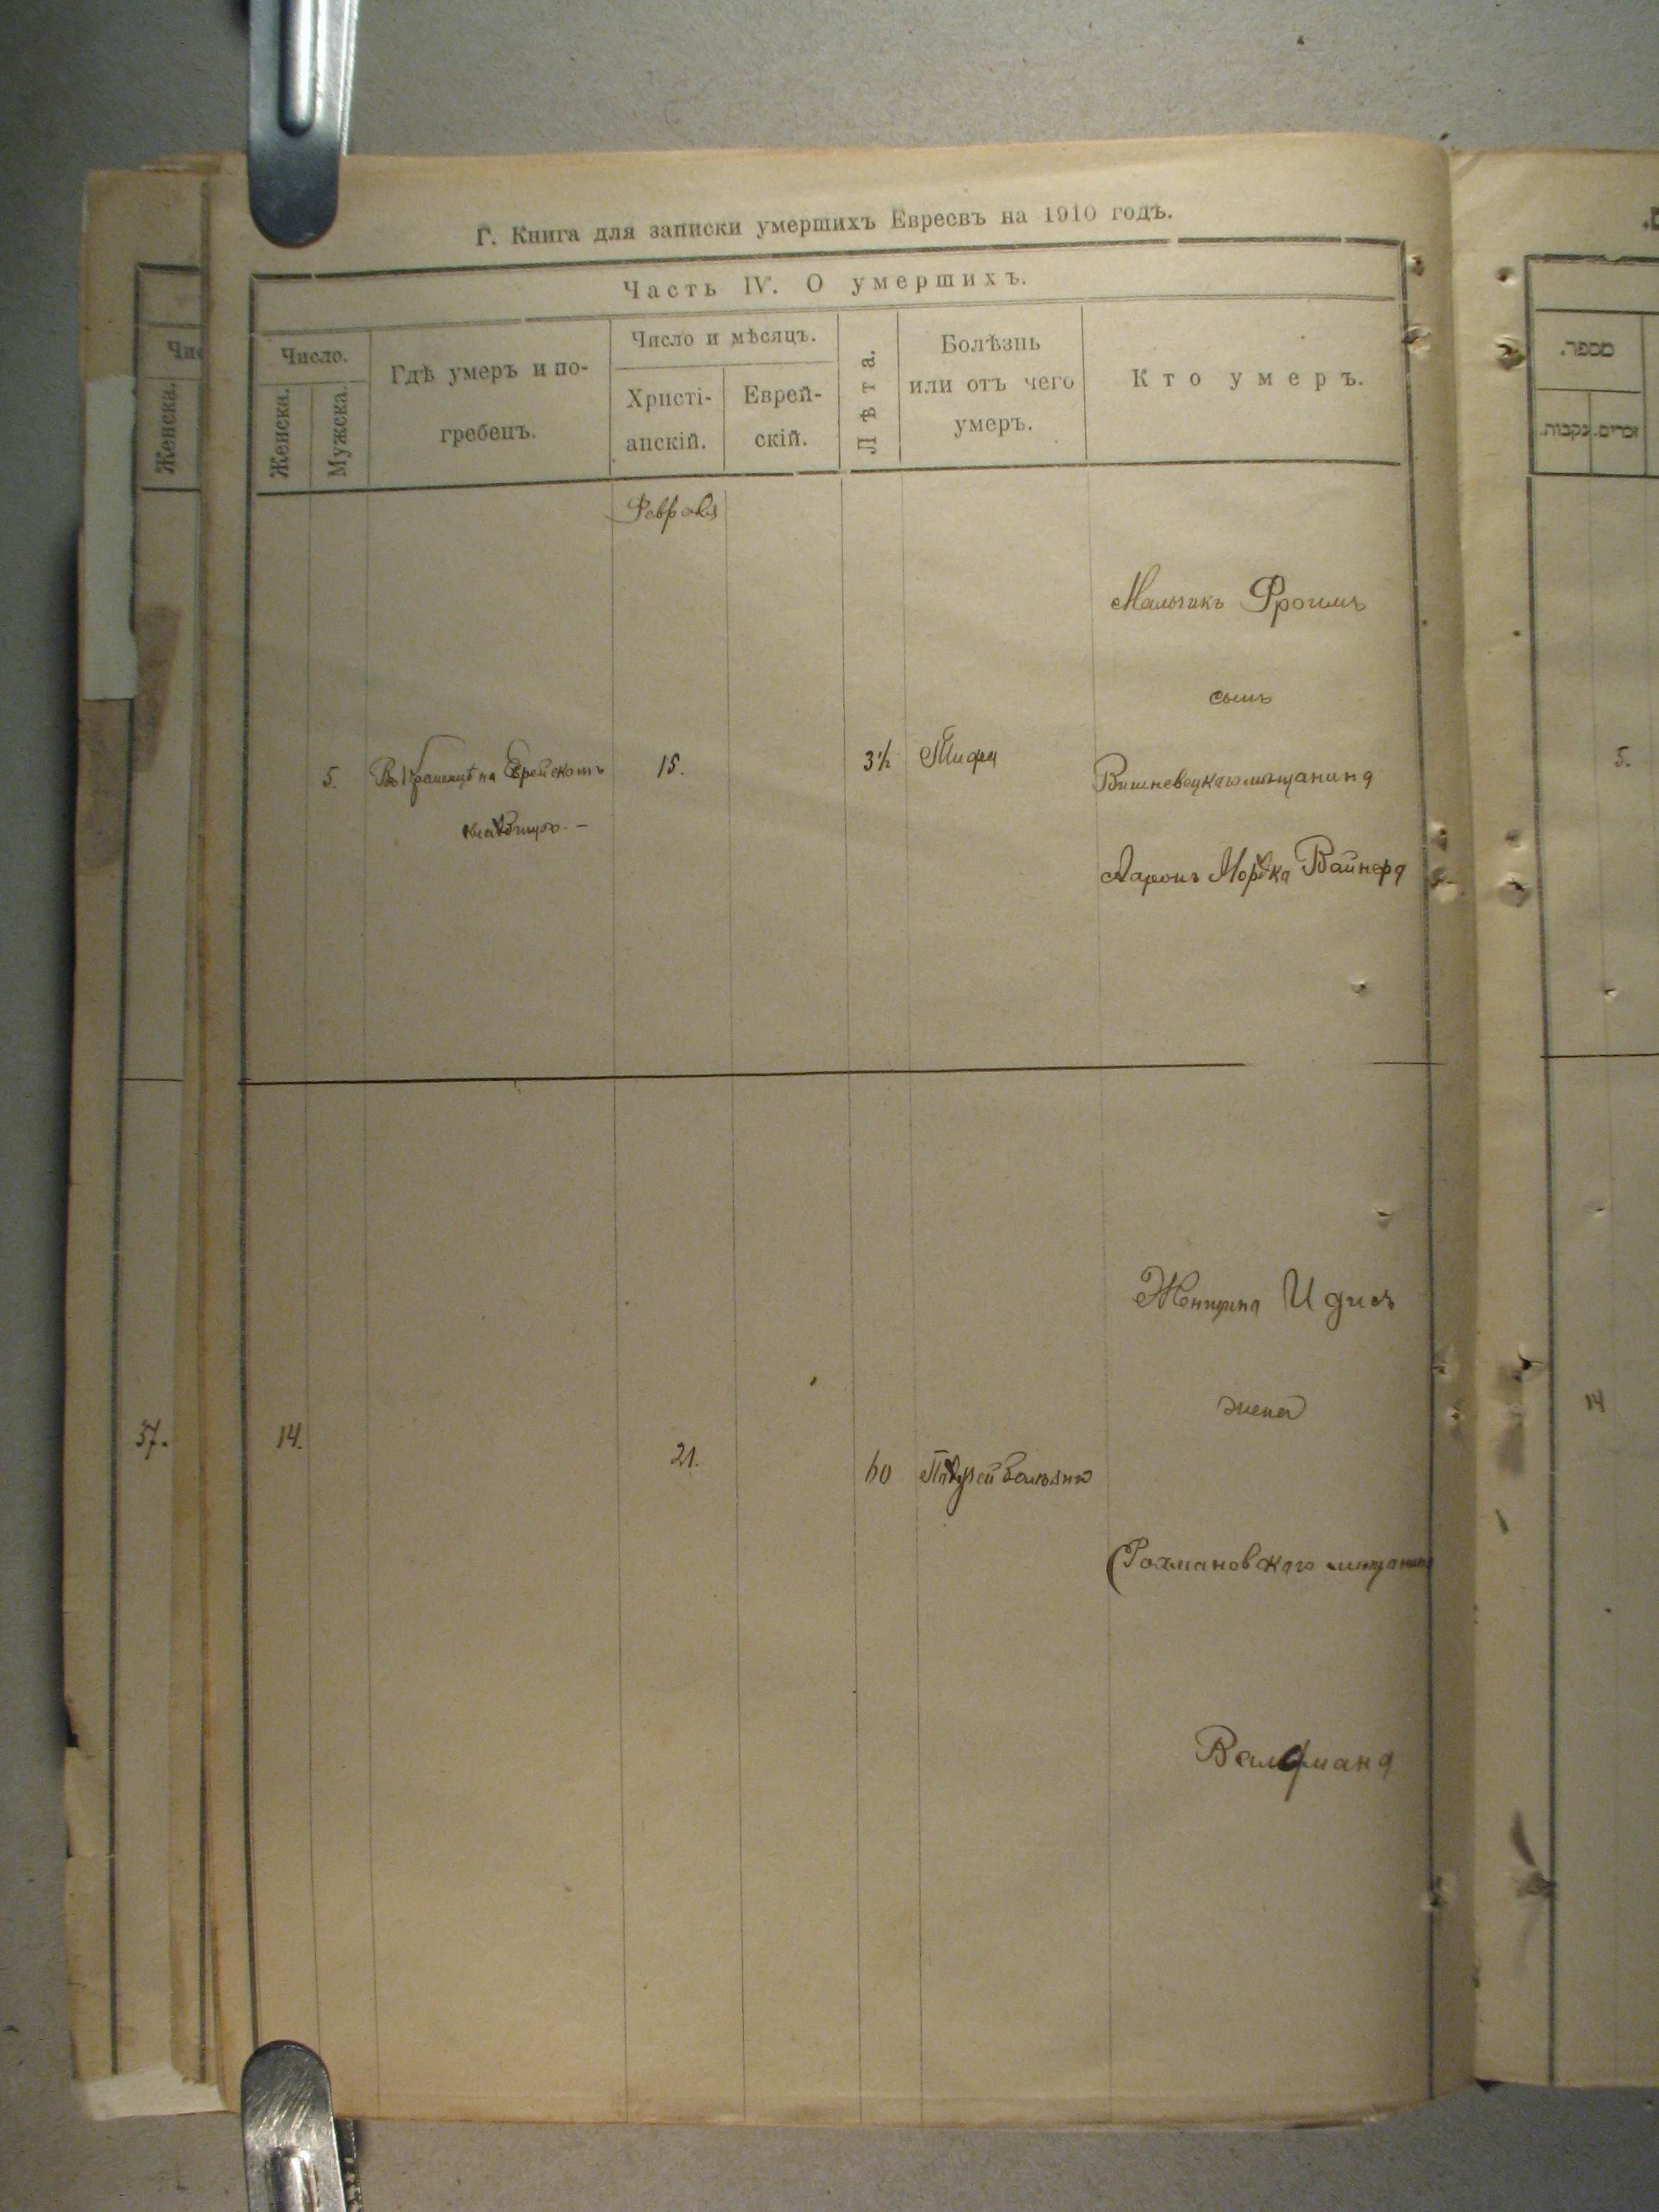 Г. Книга для записки умершихъ Евреевъ на 1910 годъ.
Часть IV. О умершихъ.
Число.
Женска.
Мужска.
Гдѣ умеръ и по-
гребенъ.
Число и мѣсяцъ.
Христі-
анскій.
Еврей-
скій.
Лѣта.
Болѣзнь
или отъ чего
умеръ.
Кто умеръ.
Февраля
Мальчикъ Фроимъ
сынъ
5. Въ Кременцѣ на Еврейскомъ 15. 3½ Тифа Вишневецкаго мѣщанина
кладбищѣ. –
Ааронъ Мордка Вайнера
Женщина Идисъ
жена
14. 21. 60
Рохмановскаго мѣщанина
Валфмана
Женска.
37.
מספר.
זכרים.
נקבות.
5.
14